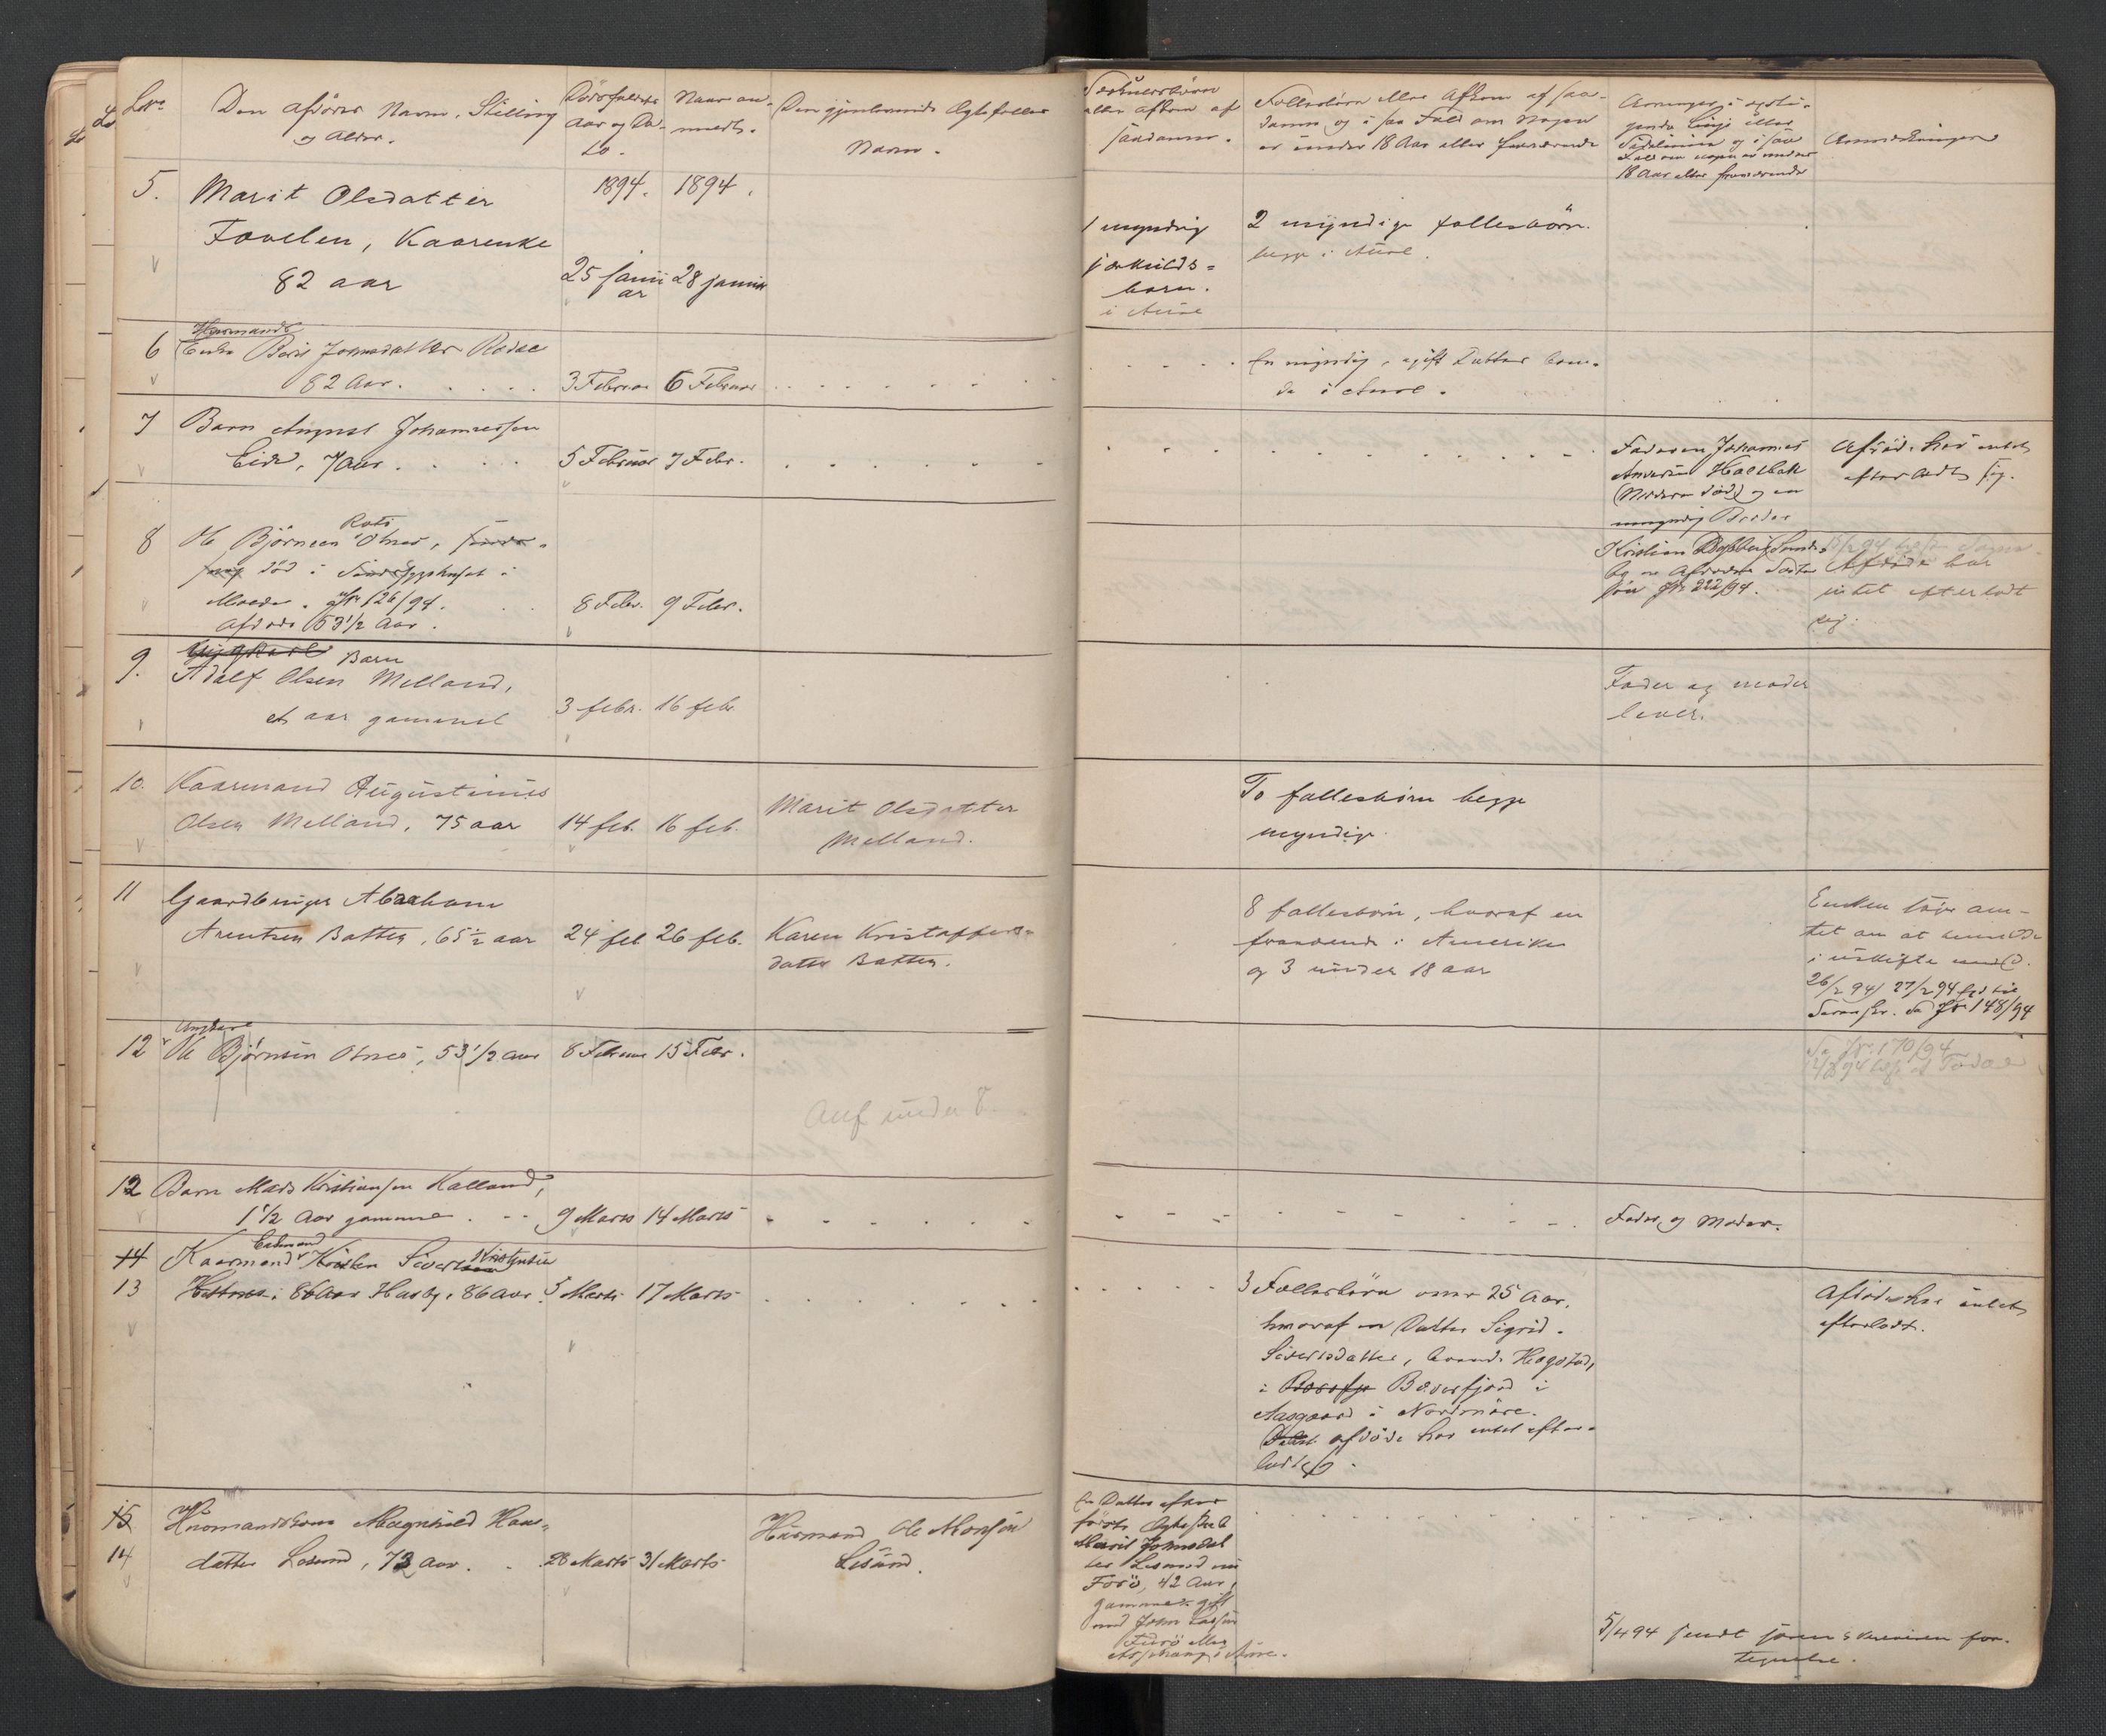 Den afdødes Navn, Stilling
og Alder.
Dødsfaldets
Aar og Da-
to.
Naar an-
meldt.
Den gjenlevende Ægtefælles
Navn.
Særkuldsbörn
eller Afkom af
saadanne.
Fællesbörn eller Afkom af saa-
danne og i saa Fald om Nogen
er under 18 Aar eller fraværende
Arvinger i opsti-
gende Linje eller
Sidelinien og i saa
Fald om nogen er under
18 Aar eller fraværende
Anmerkninger
5.
Marit Olsdatter
Tovelen, Kaarenke
82 aar
1894.
25 janu
ar
1894.
28 januar
1 myndig
særkulds=
barn.
i Aure
2 myndige fællesbörn.
begge i Aure.
6
Husmands
Enke Beret Johnsdatter Rodal
82 Aar.
3 Februar
6 Februar
En myndig, ugift Datter boen-
de i Aure.
7
Barn August Johannessen
Eide, 7 Aar.
5 Februar
7 Febr.
Faderen Johannes
(Moderen död) og en
umyndig Broder
Afdöde har intet
efterladt sig.
8
Ole Björnsen Otnes,
död i Sindssygehuset i
Molde. Jr 126/94.
Afdöde 53 1/2 Aar.
8 Febr.
9 Febr.
Kristian
Jr 222/94.
Afdøde har
intet efterladt
sig.
9.
Barn
Adolf Olsen Melland,
et aar gammel
3 febr.
16 febr.
Fader og moder
lever.
10.
Kaarmand Augustinus
Olsen Melland, 75 aar
14 feb.
16 feb.
Marit Olsdatter
Melland.
To fællesbörn begge
myndige.
11
Gaardbruger Abraham
Arentsen Batten, 65 1/2 aar
24 feb
26 feb.
Karen Kristoffers-
datter Batten.
8 fællesbörn, hvoraf en
fraværende i Amerika
og 3 under 18 aar
Enken søger am-
tet om at hensidde
i uskifte
26/2 94 / 27/2 94
Sorenskr. Jr 148/94
12
Ungkarl
Ole Björnsen Otnes, 53 1/2 Aar
8 Februar
15 Febr.
Anf under 8.
Jr. 170/94
12
Barn Mads Kristiansen Kalland,
1 1/2 Aar gammel.
9 Marts
14 Marts
Fader og Moder.
14
13
Kaarmand Kristen Sivertsen
86 Aar Hasby, 86 Aar.
5 Marts
17 Marts
3 Fællesbörn over 25 Aar,
hvoraf en Datter Sigrid
Sivertsdatter, boende Hagstad,
i Bæverfjord i
Aasgaard i Nordmöre.
afdöde har intet efter-
ladt sig.
Afdöde har intet
efterladt.
15
14
Husmandskone Magnhild Hans-
datter Lesund, 73 aar.
28 Marts
31 Marts
Husmand Ole Monsen
Lesund.
En Datter efter
förste Ægteskab
Marit Johnsdat
ter Lesund nu
Forö, 42 Aar,
gammel gift
med John Larsen
i Aure.
5/4 94 sendt sorenskriveren for-
tegnelse.